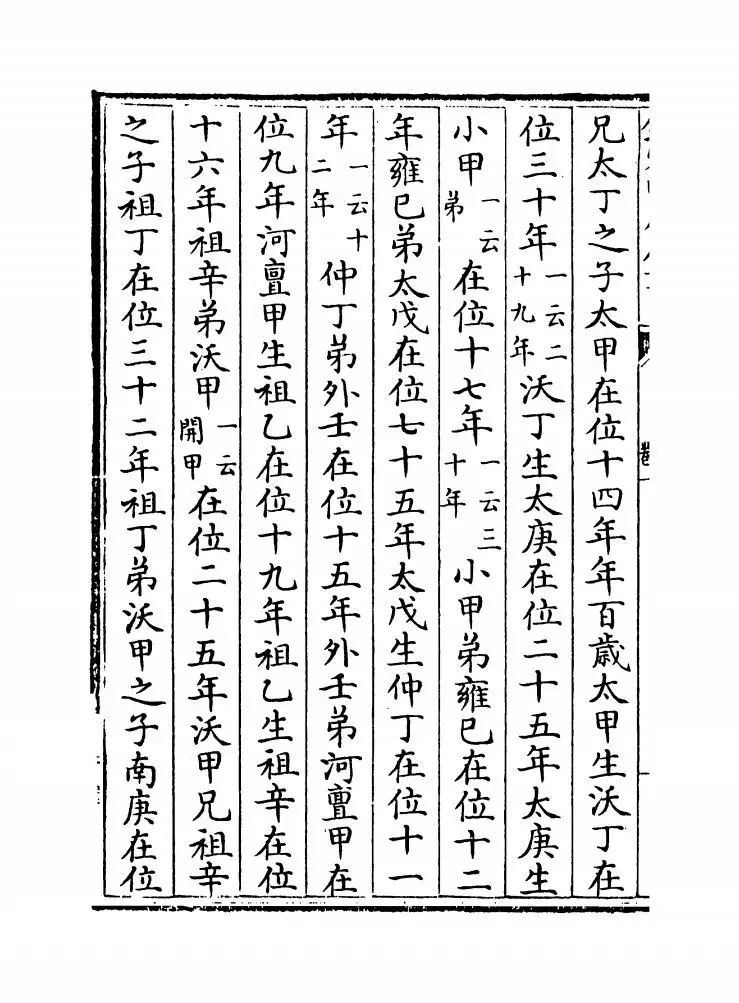 兄太丁之子太甲在位十四年年百歲太甲生沃丁在
位三十年一云二十九年沃丁生太庚在位二十五年太庚生
小甲一云弟在位十七年一云三十年小甲弟雍巳在位十二
年雍巳弟太戊在位七十五年太戊生仲丁在位十一
年一云十二年仲丁弟外壬在位十五年外壬弟河亶甲在
位九年河亶甲生祖乙在位十九年祖乙生祖辛在位
十六年祖辛弟沃甲一云開甲在位二十五年沃甲兄祖辛
之子祖丁在位三十二年祖丁弟沃甲之子南庚在位